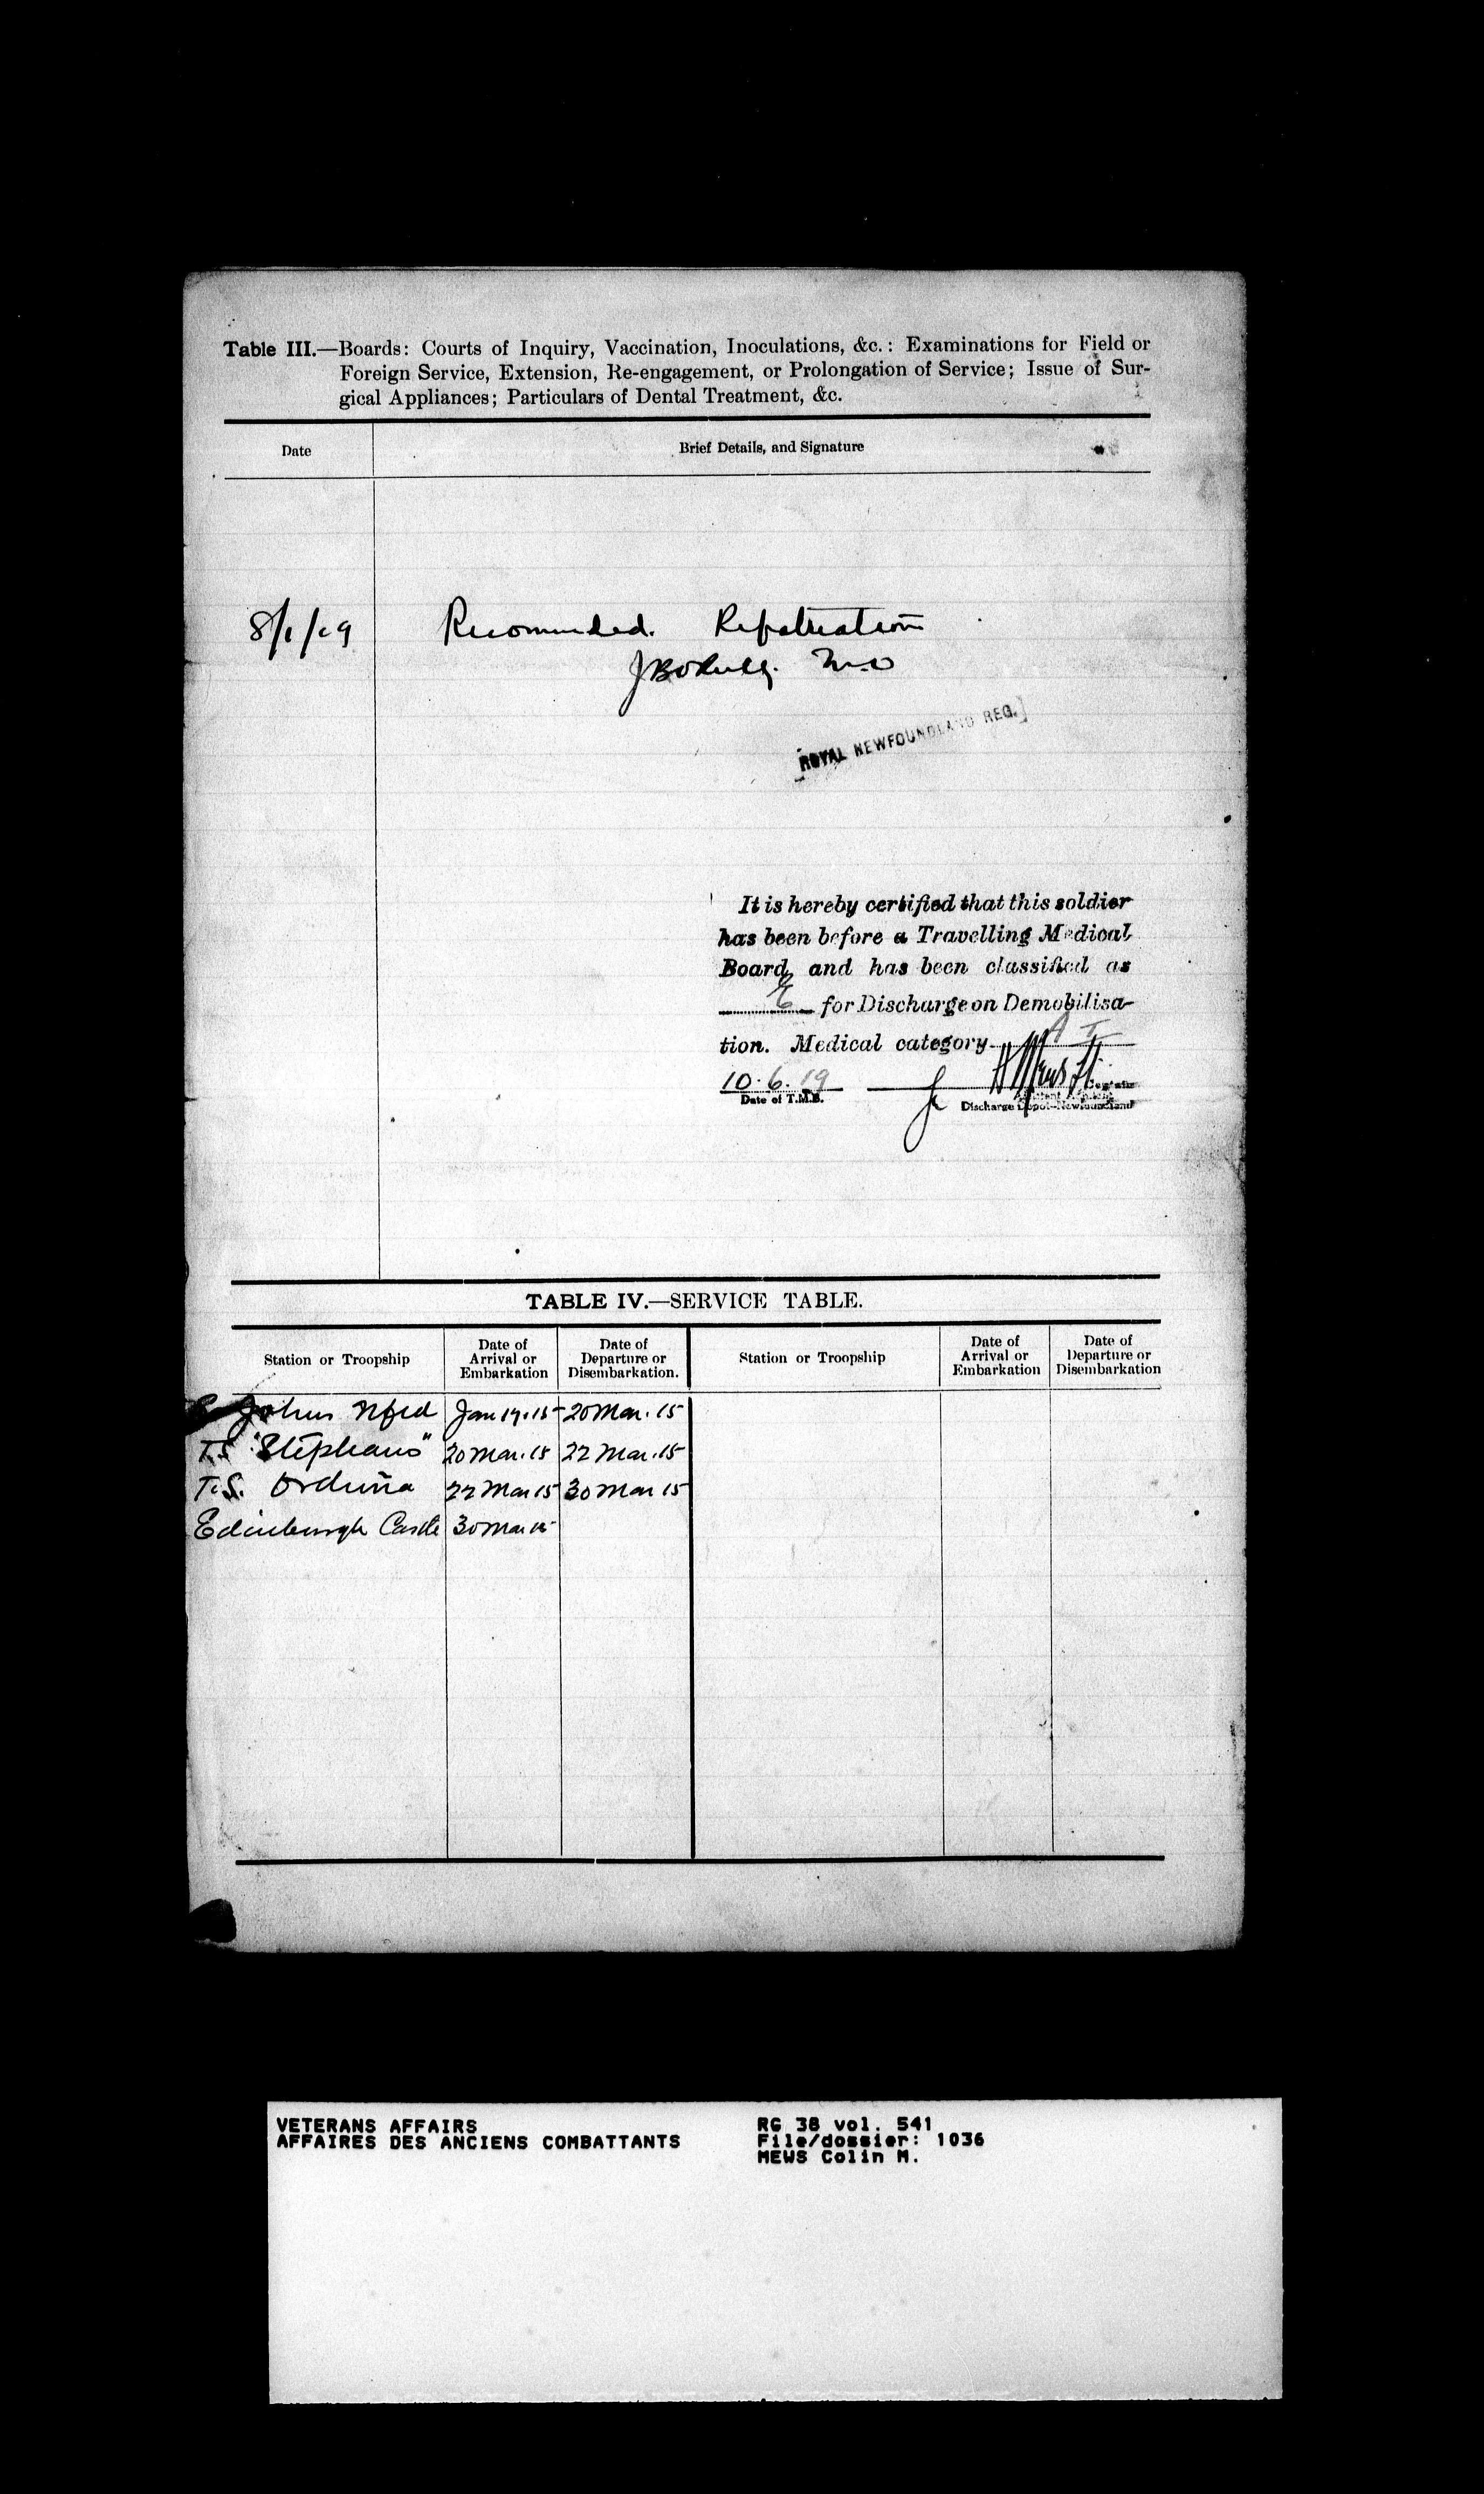 Table III.—Boards: Courts of Inquiry, Vaccination, Inoculations, &c.: Examinations for Field or
Foreign Service, Extension, Re-engagement, or Prolongation of Service; Issue of Sur-
gical Appliances; Particulars of Dental Treatment, &c.
Date Brief Details, and Signature
8/1/19 Recommended. Repatriation
M.O
ROYAL NEWFOUNDLAND REG.
It is hereby certified that this soldier
has been before a Travelling Medical
Board, and has been classified as
E for Discharge on Demobilisa-
tion. Medical category A I
10.6.19
Date of T.M.B. Captain
Discharge Depot—Newfoundland
TABLE IV.—SERVICE TABLE.
Station or Troopship Date of Arrival or Embarkation Date of Departure or Disembarkation. Station or Troopship Date of Arrival or Embarkation Date of Departure or Disembarkation
Johns Nfld Jan 19.15 20 Mar. 15
T.S. "Stephano" 20 Mar. 15 22 Mar. 15
T.S. Orduña 22 Mar 15 30 Mar 15
Edinburgh Castle 30 Mar 15
VETERANS AFFAIRS RG 38 vol. 541
AFFAIRES DES ANCIENS COMBATTANTS File/dossier: 1036
MEWS Colin M.